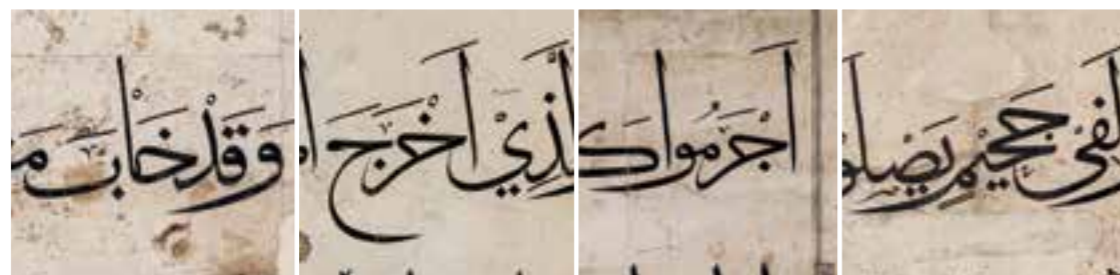 وَقَدْ خَابَ
لَّذِيْ اَخْرَجَ
اَجْرَمُوا
لَفِيْ جَحِيْمٍ يَصْلَو